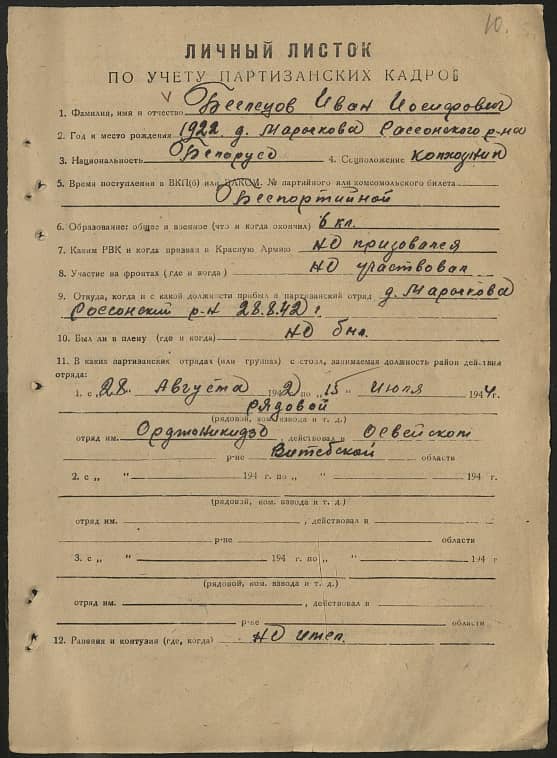 10.
ЛИЧНЫЙ ЛИСТОК
ПО УЧЕТУ ПАРТИЗАНСКИХ КАДРОВ
1. Фамилия, имя и отчество Беспецов Иван Иосифович
2. Год и место рождения 1922 д. Марочкова Россонского р-на
3. Национальность Белорус 4. Соцположение колхозник
5. Время поступления в ВКП(б) или ВЛКСМ. № партийного или комсомольского билета
Беспортийной
6. Образование: общее и военное (что и когда окончил) 6 кл.
7. Каким РВК и когда призван в Красную Армию не призовался
8. Участие на фронтах (где и когда) не участвовал
9. Откуда, когда и с какой должности прибыл в партизанский отряд д. Марочкова
Россонский р-н 28.8.42 г
10. Был ли в плену (где и когда) не был
11. В каких партизанских отрядах (или группах) состоял, занимаемая должность район действия
отряда:
1. с „28 Августа 1942 по „15" июля 1944г.
рядовой
(рядовой, ком. взвода и т. д.)
отряд им. Орджоникидзе, действовал в Освейском
р-не Витебской области
2. с „ " 194 г. по „ " 194 г.
(рядовой, ком. взвода и т. д.)
отряд им. , действовал в
р-не области
3. с „ " 194 г. по „ " 194 г
(рядовой, ком. взвода и т. д.)
отряд им. , действовал в
р-не области
12. Ранения и контузии (где, когда) не имел.